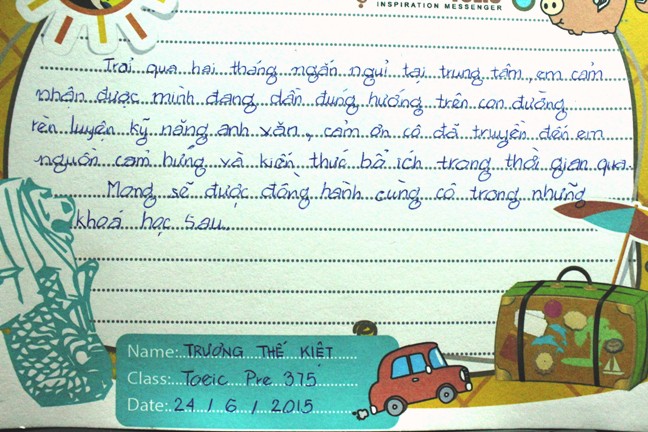 INSPIRATION MESSENGER
Trải qua hai tháng ngắn ngủi tại trung tâm, em cảm
nhận được mình đang dần đúng hướng trên con đường
rèn luyện kỹ năng anh văn, cảm ơn cô đã truyền đến em
nguồn cảm hứng và kiến thức bổ ích trong thời gian qua.
Mong sẽ được đồng hành cùng cô trong những
khoá học sau.
Name: TRƯƠNG THẾ KIỆT
Class: Toeic Pre 375
Date: 24 / 6 / 2015